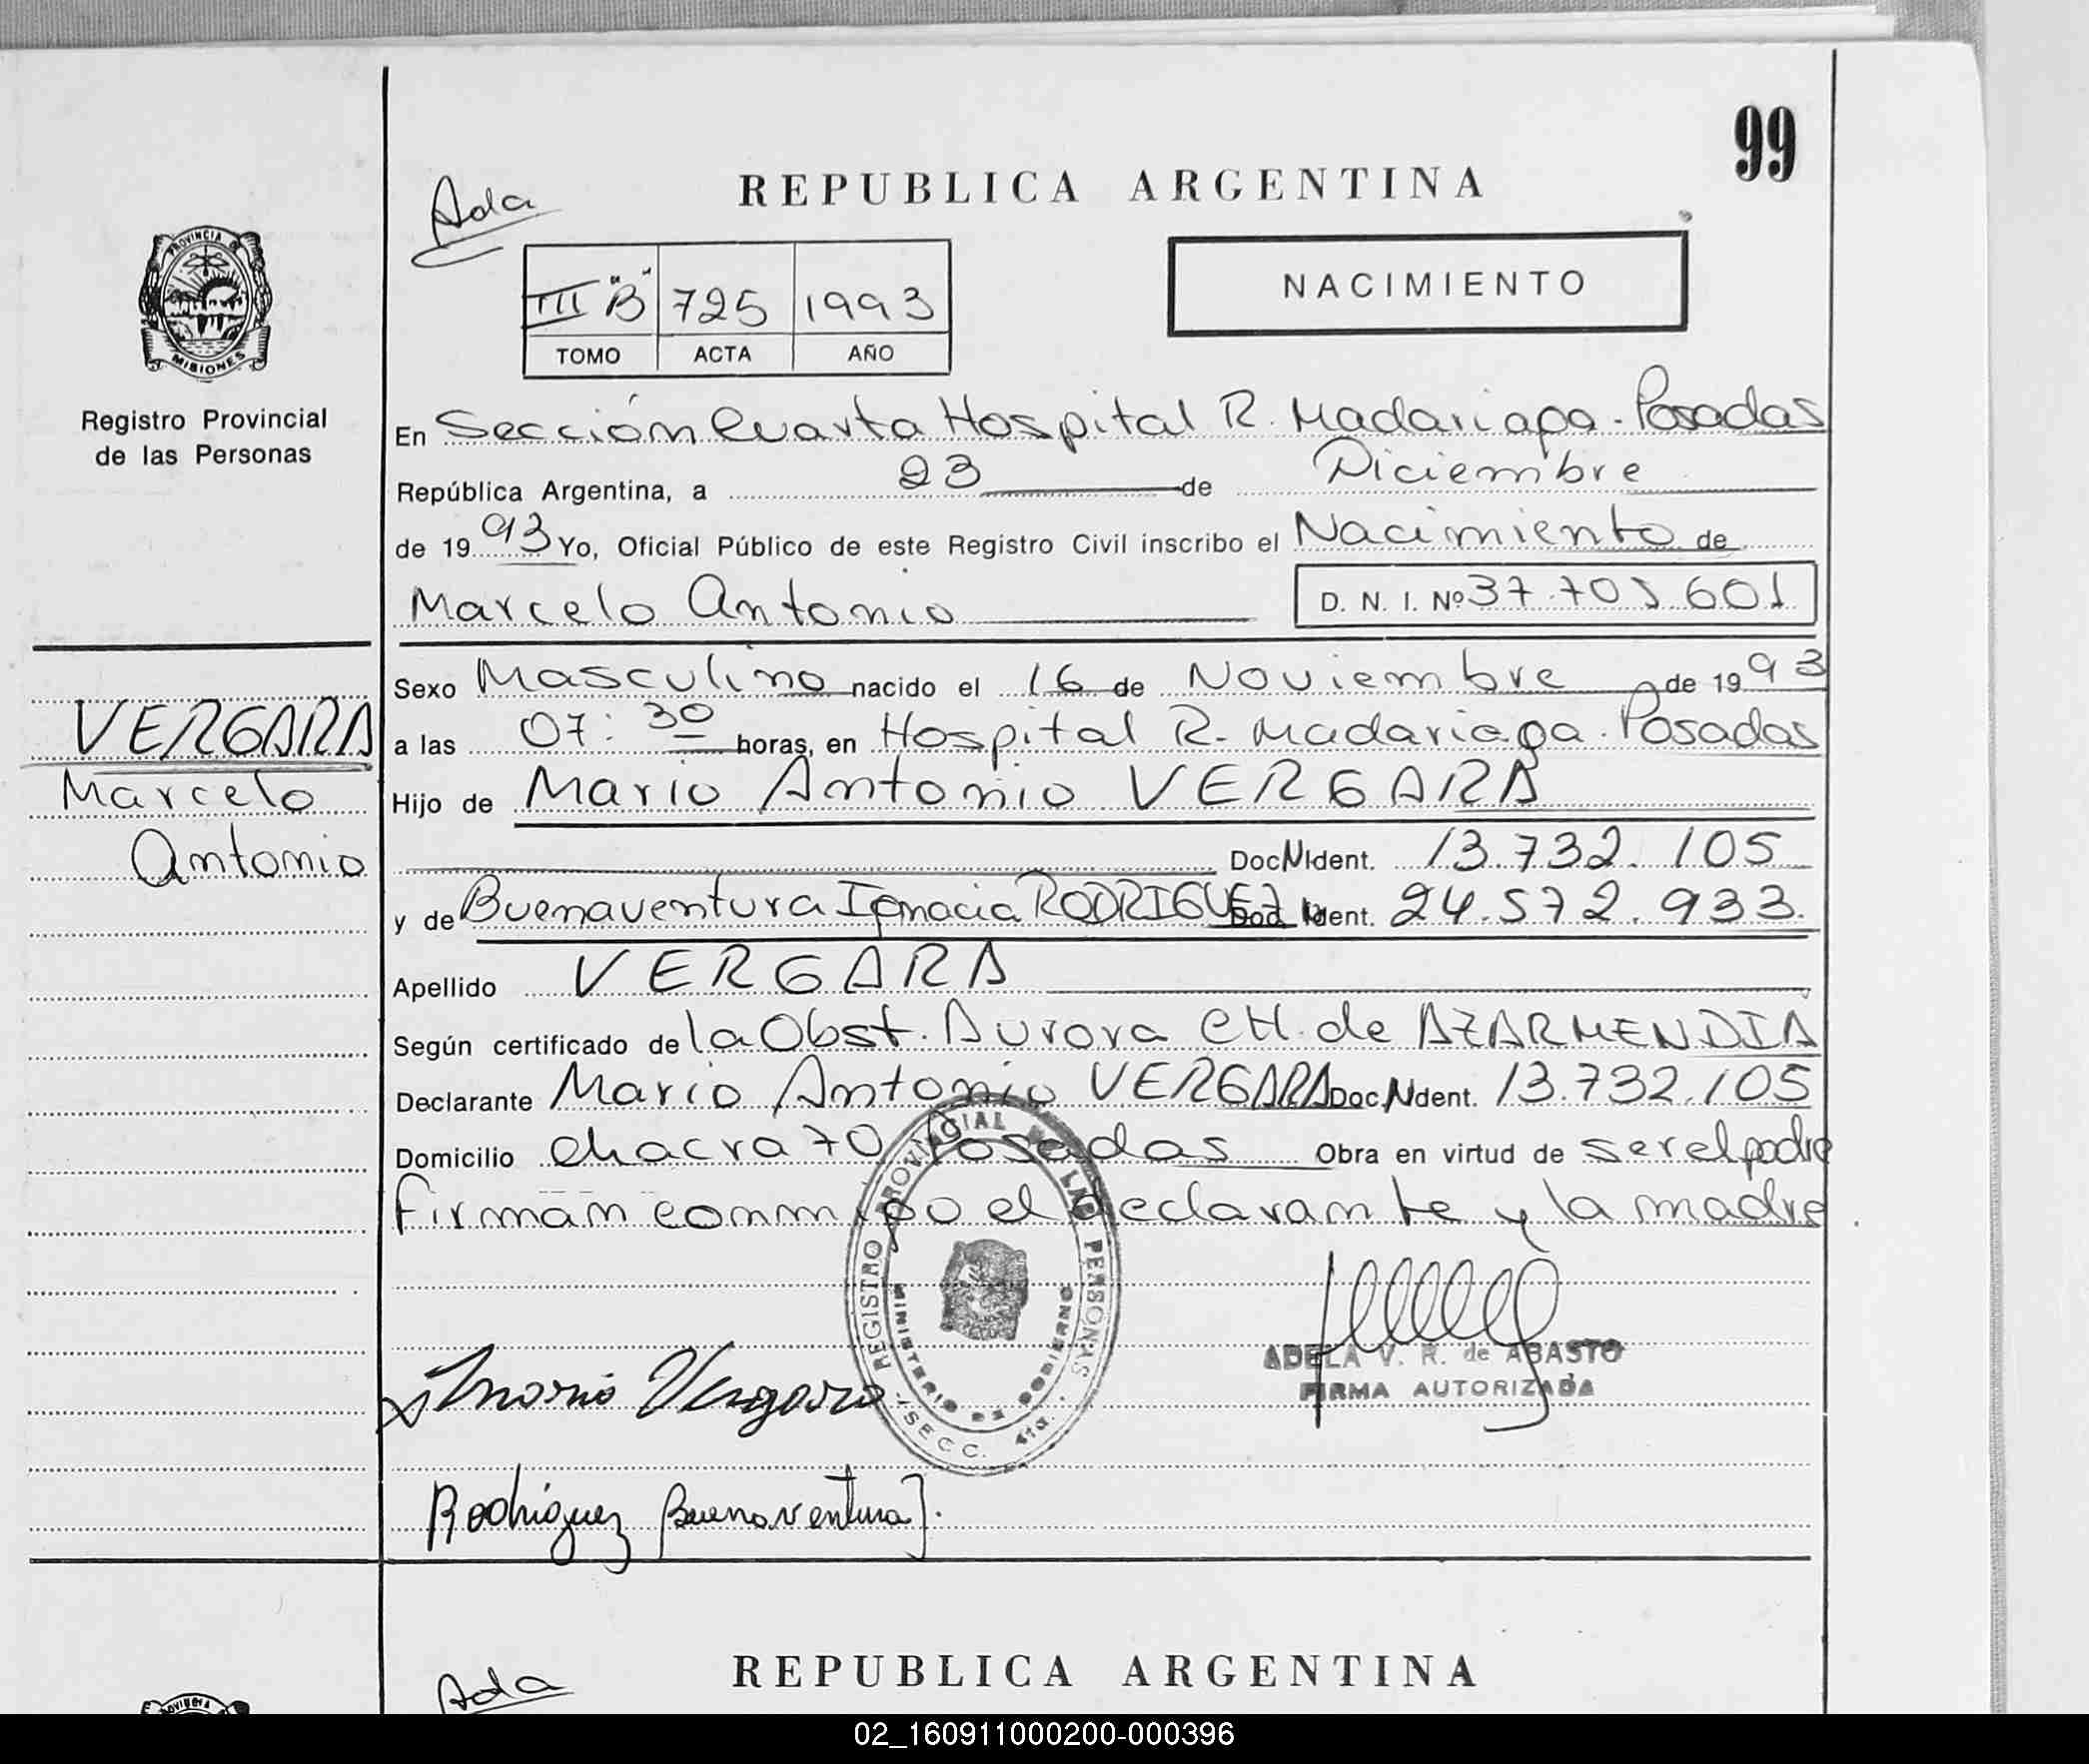 99
REPUBLICA ARGENTINA
Ada
NACIMIENTO
III "B" 725 1993
TOMO ACTA AÑO
PROVINCIA DE MISIONES
Registro Provincial
de las Personas
En Sección Cuarta Hospital R. Madariaga - Posadas
República Argentina, a 23 de Diciembre
de 1993 Yo, Oficial Público de este Registro Civil inscribo el Nacimiento de
Marcelo Antonio D. N. I. Nº 37.705.601
Sexo Masculino nacido el 16 de Noviembre de 1993
VERGARA
a las 07:30 horas, en Hospital R. Madariaga. Posadas
Marcelo
Hijo de Mario Antonio VERGARA
Antonio
Doc N Ident. 13.732.105
y de Buenaventura Ignacia RODRIGUEZ Doc. Ident. 24.572.933.
Apellido VERGARA
Según certificado de la Obst. Aurora CH. de AZARMENDIA
Declarante Mario Antonio VERGARA Doc. N Ident. 13.732.105
Domicilio chacra 70 Posadas Obra en virtud de ser el padre
Firman conmigo el declarante y la madre
REGISTRO PROVINCIAL DE LAS PERSONAS
MINISTERIO DE GOBIERNO
SECC. 4ta.
ADELA V. R. de ABASTO
FIRMA AUTORIZADA
Mario Vergara
Rodriguez Buenaventura I.
REPUBLICA ARGENTINA
Ada
02_160911000200-000396